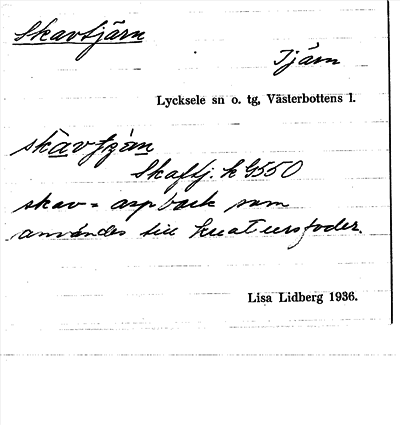 Skavtjärn
Tjärn
Lycksele sn o. tg, Västerbottens l.
skavtjan
Skaftj. k G550
skav = aspbark som
användes till kreatursfoder.
Lisa Lidberg 1936.